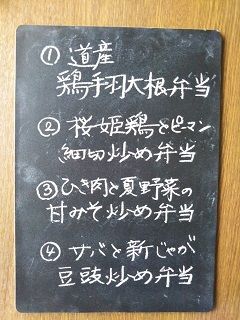 ① 道産
鶏手羽大根弁当
② 桜姫鶏とピーマン
細切炒め弁当
③ ひき肉と夏野菜の
甘みそ炒め弁当
④ サバと新じゃが
豆豉炒め弁当